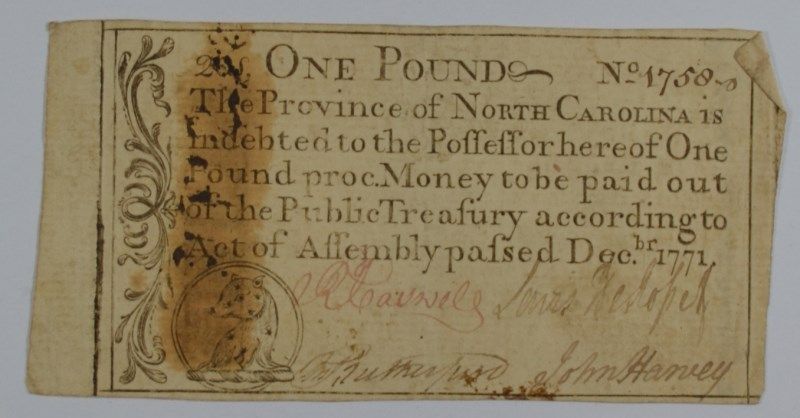 20/ ONE POUND No. 1758
The Province of NORTH CAROLINA is
indebted to the Poſſeſſor hereof One
Pound proc. Money to be paid out
of the Public Treaſury according to
Act of Aſſembly paſsed Dec.br 1771.
R Caswell Lewis De Roſset
R Rutherfurd John Harvey